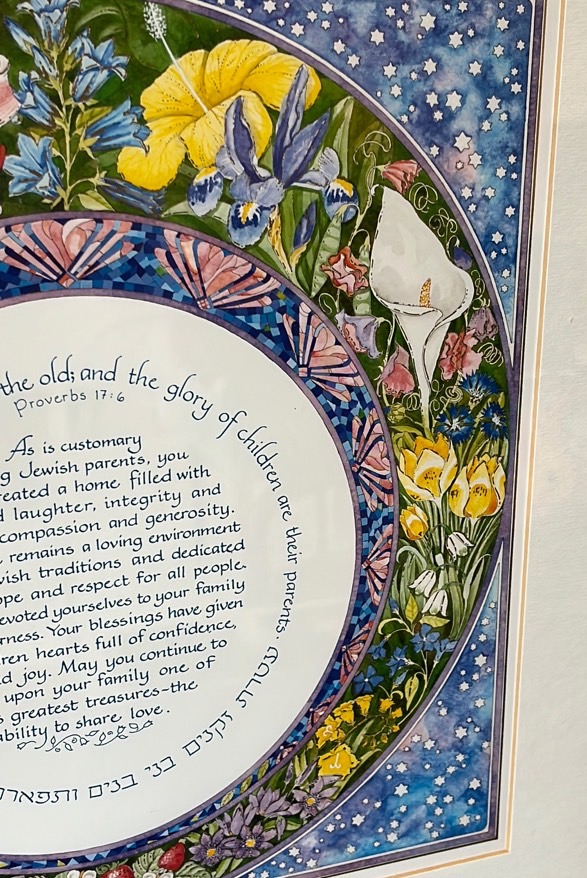 the old; and the glory of children are their parents.
עטרת זקנים בני בנים ותפאר
Proverbs 17:6
As is customary
Jewish parents, you
reated a home filled with
laughter, integrity and
compassion and generosity.
remains a loving environment
wish traditions and dedicated
ope and respect for all people.
evoted yourselves to your family
rness. Your blessings have given
ren hearts full of confidence,
d joy. May you continue to
upon your family one of
s greatest treasures-the
ability to share love.